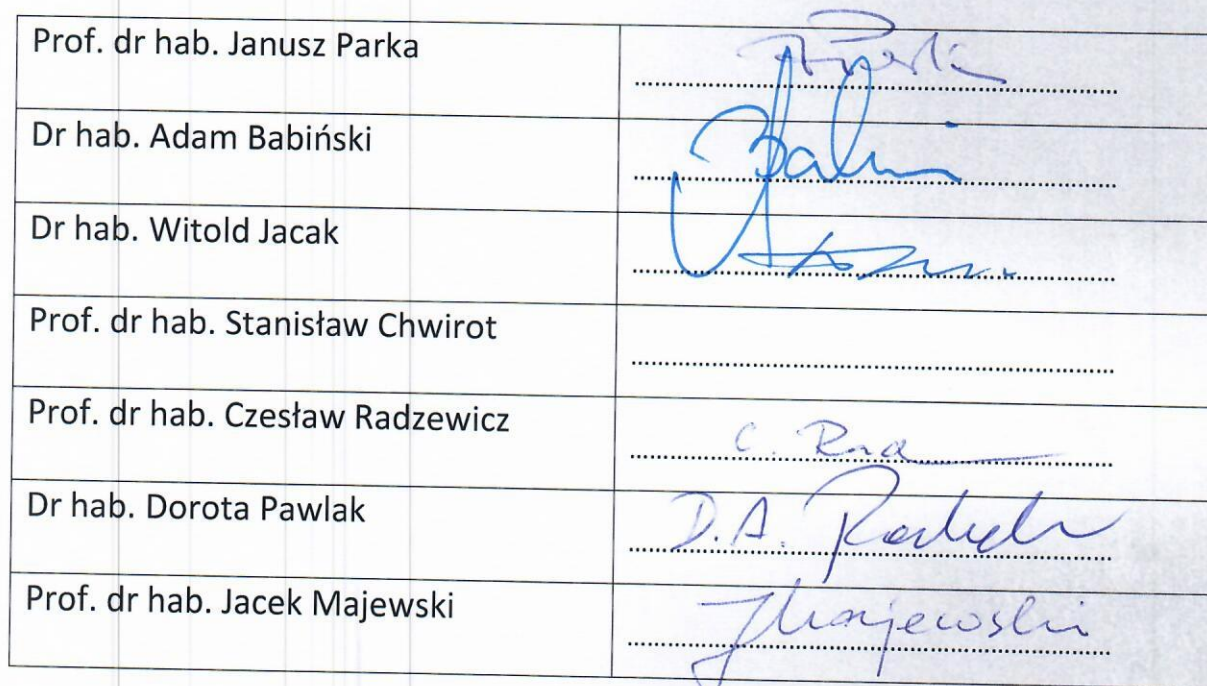 Prof. dr hab. Janusz Parka
Dr hab. Adam Babiński
Dr hab. Witold Jacak
Prof. dr hab. Stanisław Chwirot
Prof. dr hab. Czesław Radzewicz
C.
Dr hab. Dorota Pawlak
D.A.
Prof. dr hab. Jacek Majewski
JMajewski